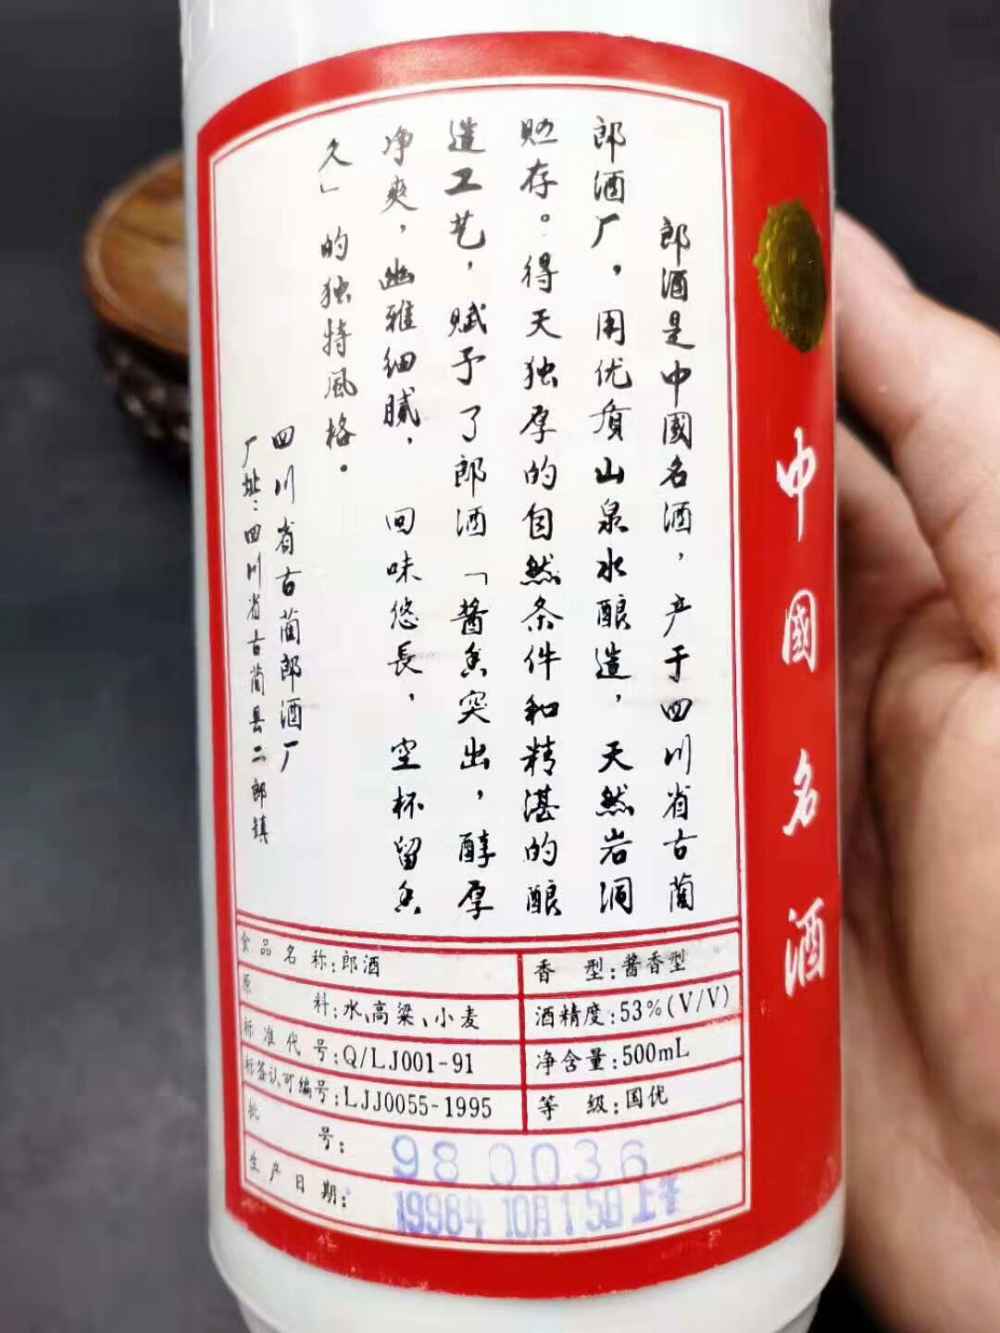 郎酒是中國名酒，产于四川省古蔺
郎酒厂，用优质山泉水酿造，天然岩洞
贮存。得天独厚的自然条件和精湛的酿
造工艺，赋予了郎酒「酱香突出，醇厚
净爽，幽雅细腻，回味悠長，空杯留香
久」的独特風格。
四川省古蔺郎酒厂
厂址：四川省古蔺县二郎镇
中國名酒
食品名称：郎酒
香型：酱香型
原料：水、高粱、小麦
酒精度：53%(V/V)
标准代号：Q/LJ001-91
净含量：500mL
标签认可编号：LJJ0055-1995
等级：国优
批号：980036
生产日期：1998年10月15日上午